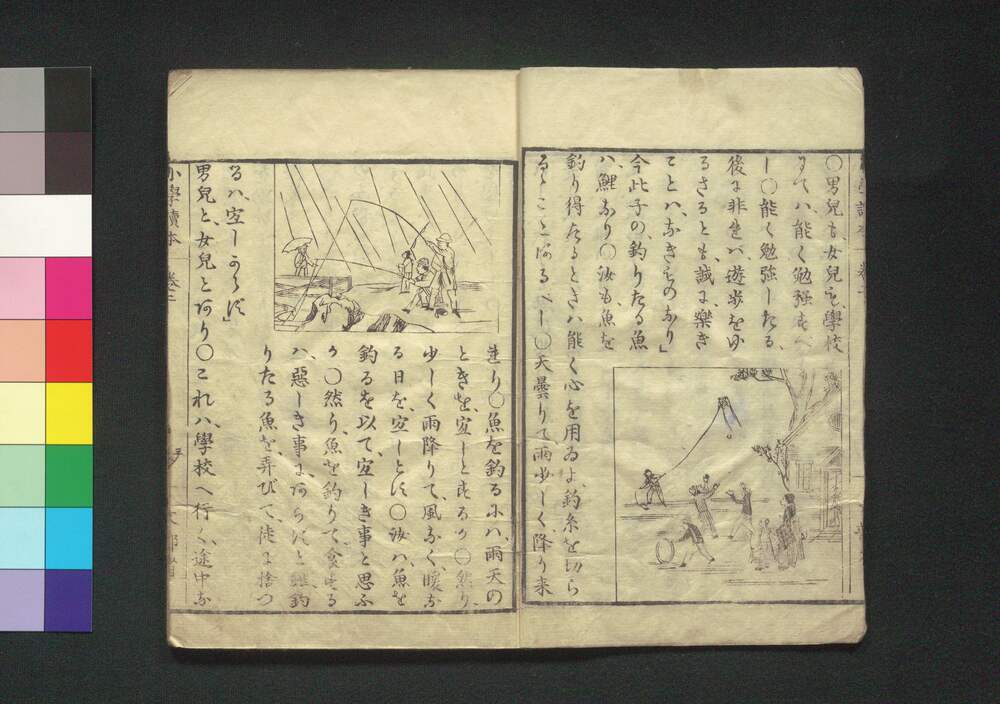 ○男兒も、女兒も、學校
にてハ、能く勉強すべ
し○能く勉強したる、
後に非れバ、遊歩を爲
るさるとも、誠に樂き
ことハ、なきものなり」
今此子の、釣りたる魚
ハ、鯉なり○汝も、魚を
釣り得たるときハ能く心を用ゐよ、釣糸を切ら
るゝことあるべし○天曇りて雨少しく、降り来
れり○魚を釣るにハ、雨天の
ときを、宜しとするか○然り、
少しく雨降りて、風なく、暖な
る日を、宜しとす○汝ハ、魚を
釣るを以て、宜しき事と思ふ
か○然り、魚を釣りて、食する
ハ、惡しき事にあらずと雖、釣
りたる魚を、弄びて、徒に捨つ
るハ、宜しからず」
男兒と、女兒とあり○これハ、學校へ行く、途中な
小學讀本 卷二